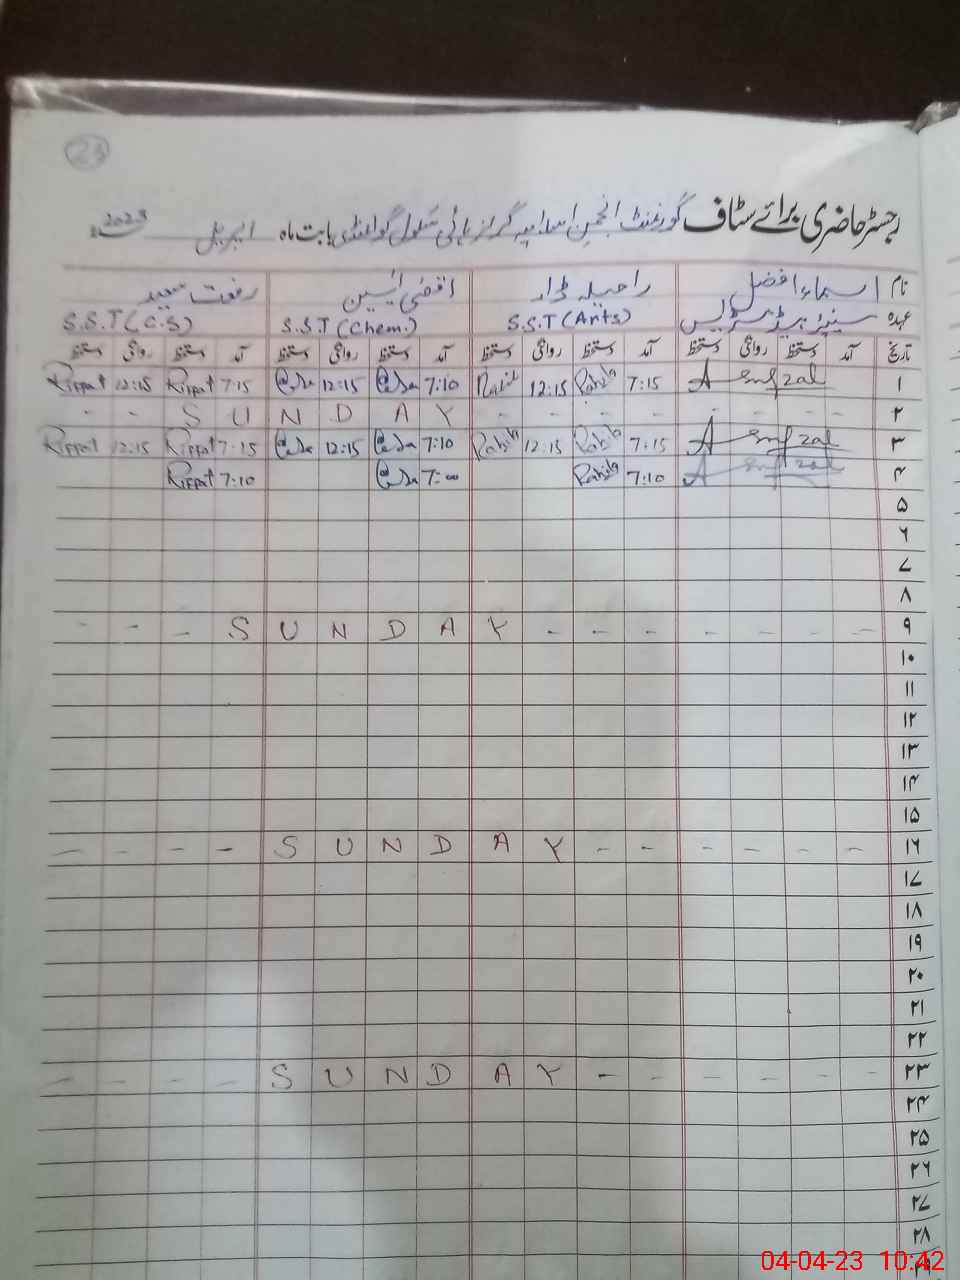 23
رجسٹر حاضری برائے سٹاف گورنمنٹ انجمن اسلامیہ گرلز ہائی سکول گوالمنڈی بابت ماہ اپریل 2023ء
نام اسماء افضل راحیلہ ڈار اقصیٰ یٰسین رفعت سعید
عہدہ سینئر ہیڈ مسٹریس S.S.T (Arts) S.S.T (Chem.) S.S.T (C.S)
تاریخ آمد دستخط روانگی دستخط آمد دستخط روانگی دستخط آمد دستخط روانگی دستخط آمد دستخط روانگی دستخط
۱ Asmafzal 7:15 Rahila 12:15 Rahila 7:10 12:15 7:15 Riffat 12:15 Riffat
۲ - - - - - - - S U N D A Y - -
۳ Asmafzal 7:15 Rahila 12:15 Rahila 7:10 12:15 7:15 Riffat 12:15 Riffat
۴ Asmafzal 7:10 Rahila 7:00 7:10 Riffat
۵
۶
۷
۸
۹ - - - - - - - S U N D A Y - - -
۱۰
۱۱
۱۲
۱۳
۱۴
۱۵
۱۶ - - - - - - S U N D A Y - - - -
۱۷
۱۸
۱۹
۲۰
۲۱
۲۲
۲۳ - - - - - - S U N D A Y - - - -
۲۴
۲۵
۲۶
۲۷
۲۸
۲۹
04-04-23 10:42